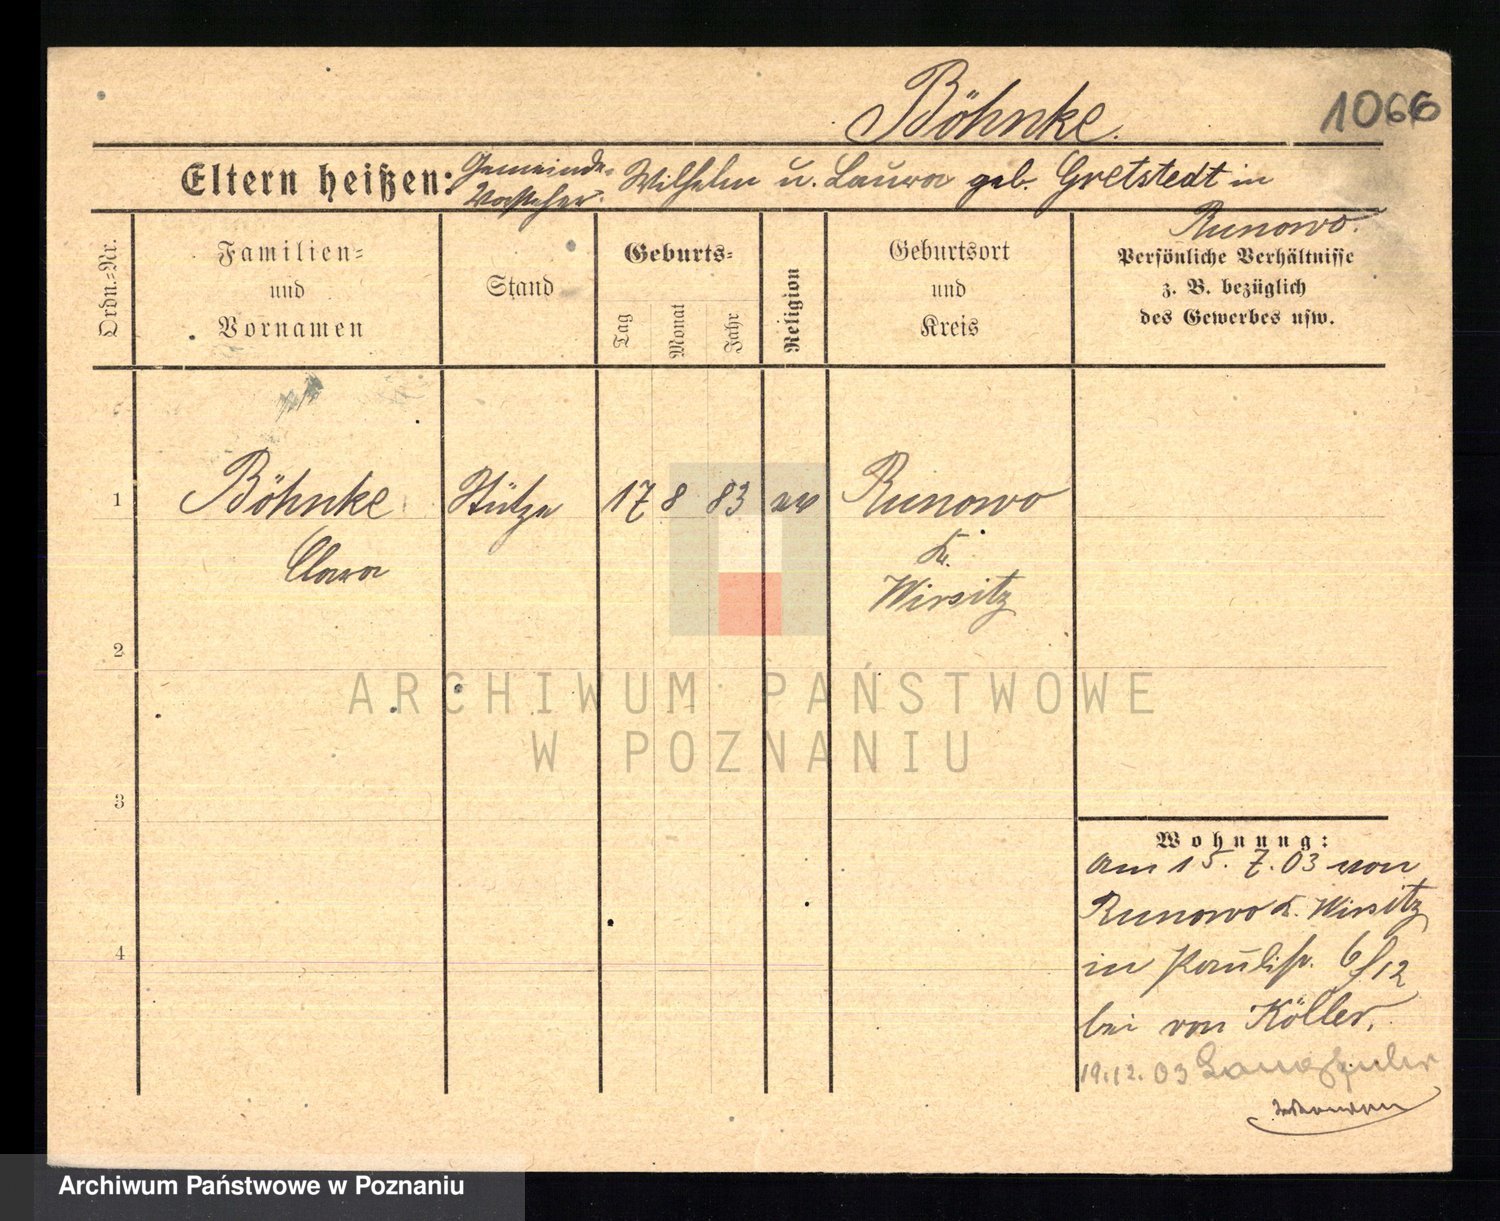 Böhnke.
1066
Eltern heißen: Gemeinde-
Vorsteher Wilhelm u. Laura geb. Gretstedt in
Runowo.
Ordn.-Nr.
Familien-
und
Vornamen
Stand
Geburts-
Tag
Monat
Jahr
Religion
Geburtsort
und
Kreis
Persönliche Verhältnisse
z. B. bezüglich
des Gewerbes usw.
1
Böhnke
Clara
Stütze
17 8 83 ev
Runowo
Kr.
Wirsitz
2
3
4
Wohnung:
am 15. 7. 03 von
Runowo K. Wirsitz
in Paulistr. 6/12
bei von Köller.
19.12.03
ARCHIWUM PAŃSTWOWE
W POZNANIU
Archiwum Państwowe w Poznaniu